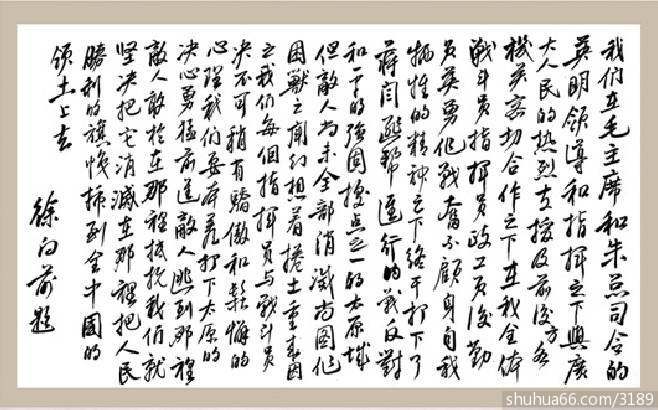 我们在毛主席和朱总司令的
英明领導和指挥之下與廣
大人民的热烈支援及前後方各
機关密切合作之下在我全体
战斗员指挥员政工员後勤
员英勇作战奮不顧身自我
牺牲的精神之下终于打下了
蒋阎匪帮進行内战反對
和平的强固據点之一的太原城
但敵人尚未全部消滅尚图作
困獸之鬥幻想着捲土重来因
之我们每個指挥员与戰斗员
决不可稍有驕傲和鬆懈的
心理我们要本着打下太原的
决心勇猛前進敵人逃到那裡
敵人敢於在那裡抵抗我们就
坚决把它消滅在那裡把人民
勝利的旗幟插到全中國的
领土上去
徐向前題
shuhua66.com/3189